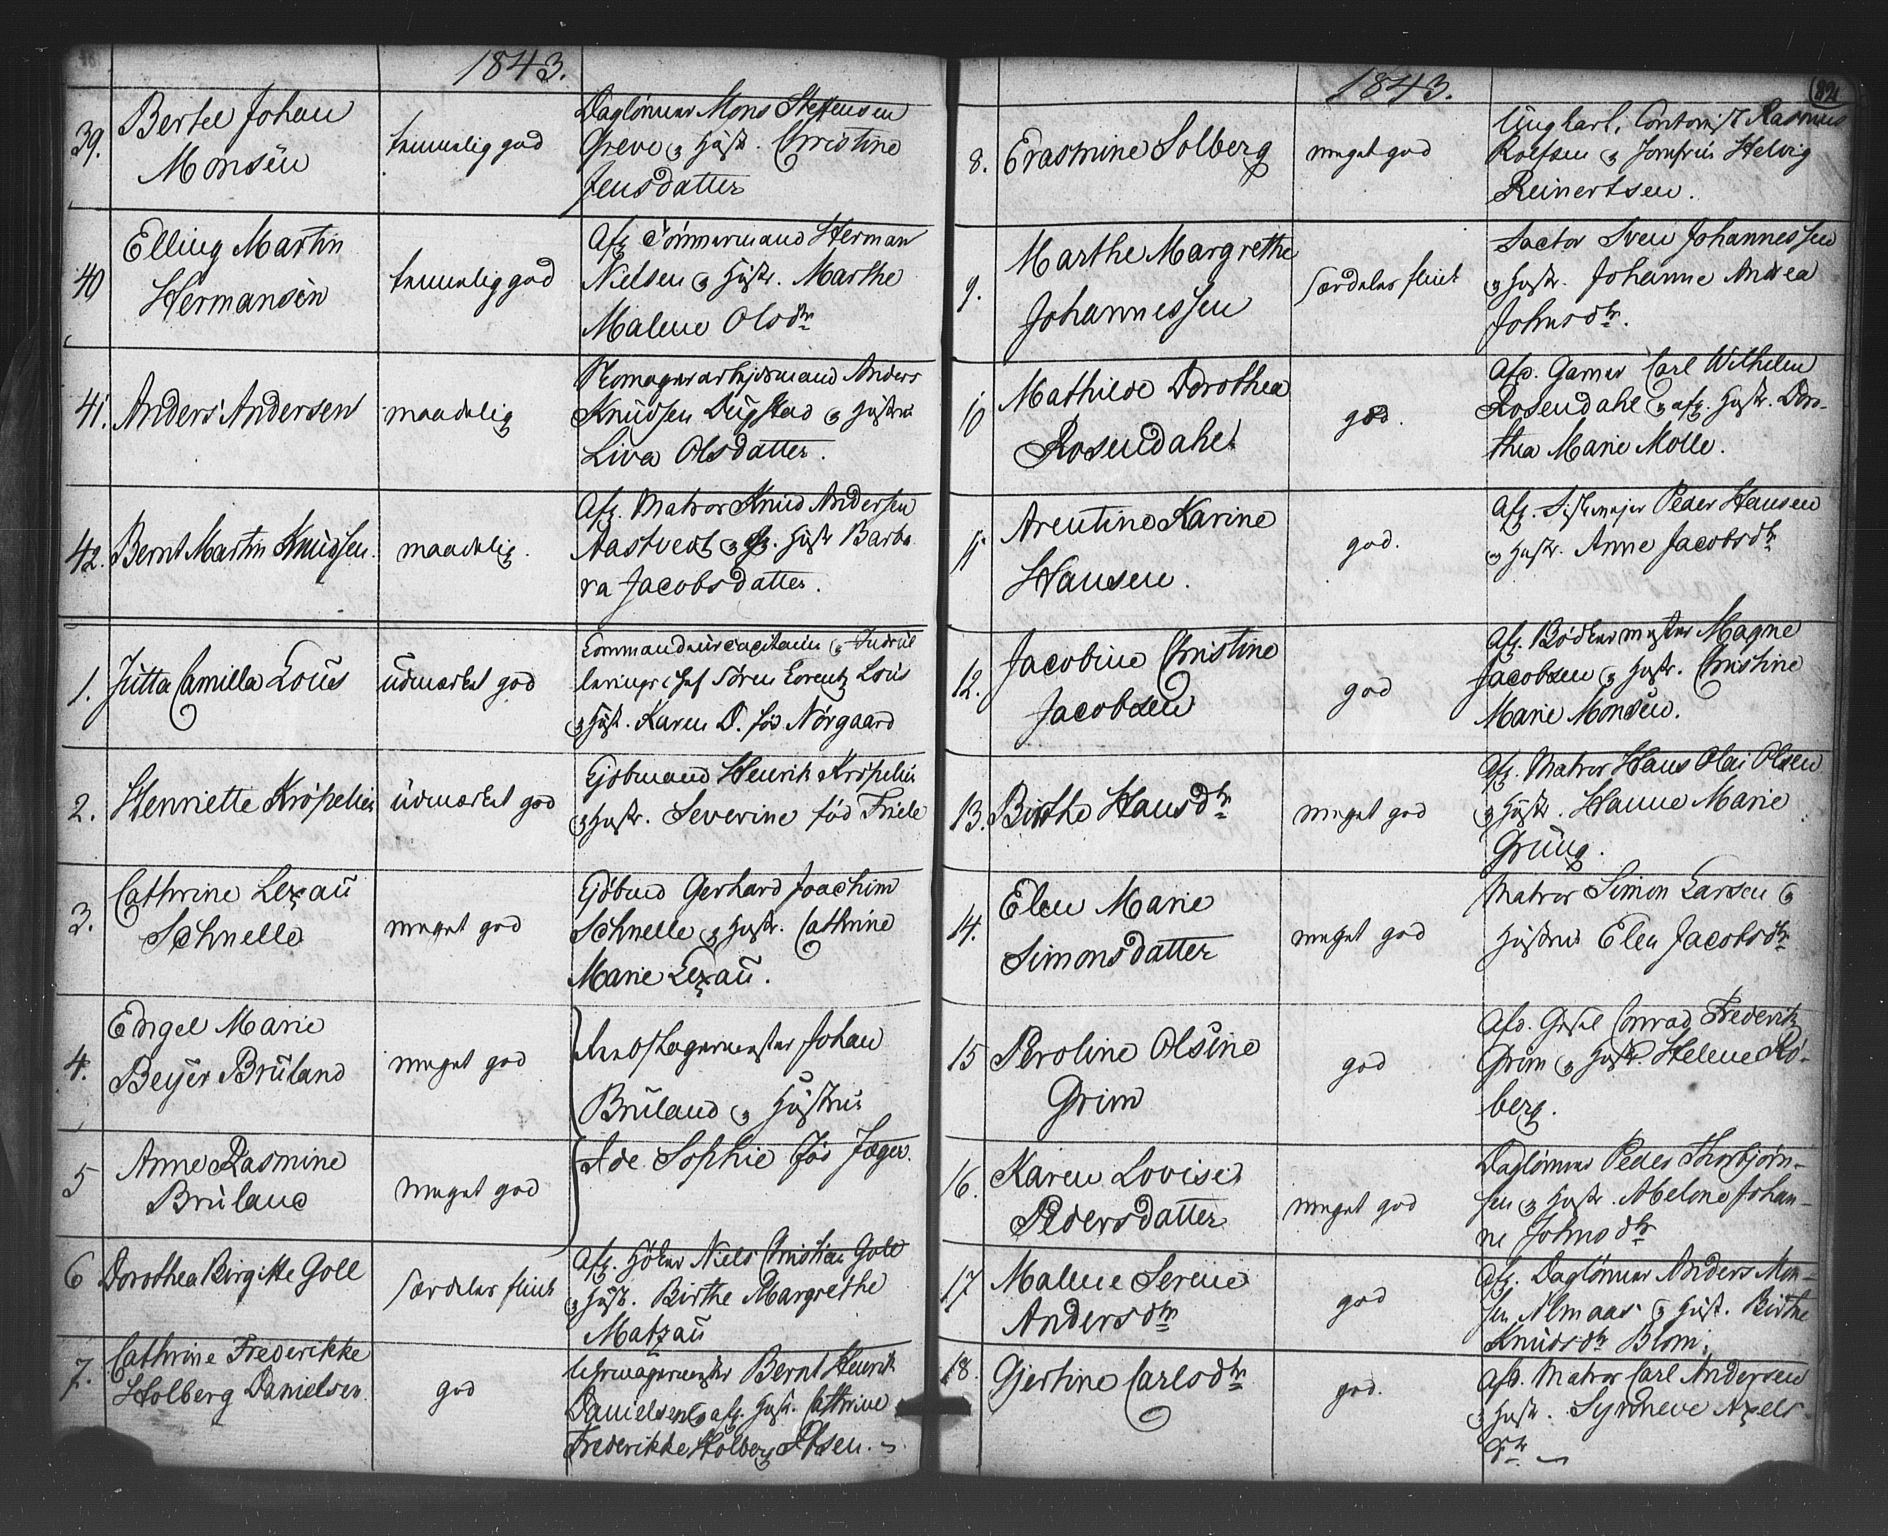 1843.
39.
Bertel Johan
Monsen
temmelig god
Daglønner Mons Steffensen
Greve og Hustr. Christine
Jensdatter
40
Elling Martin
Hermansen
temmelig god
Afg. Tømmermand Herman
Nielsen og Hustr. Marthe
Malene Olsdtr
41.
Anders Andersen
maadelig
Skomagerarbeidsmand Anders
Knudsen Dugstad og Hustru
Liva Olsdatter.
42.
Bernt Martin Knudsen.
maadelig.
Afg. Matros Knud Andersen
Aastvedt og Hustr Barba
ra Jacobsdatter.
1.
Jutta Camilla Lous
udmærket god
Commandeurcapitain og Indrul
leringschef Søren Lorentz Lous
og Hust. Karen D. fød Nørgaard
2.
Henriette Krøpelin
udmærket god
Kjøbmand Henrik Krøpelin
og Hustr. Severine fød Friele
3.
Cathrine Lexau
Schnelle
meget god
Kjøbmd Gerhard Joachim
Schnelle og Hustr. Cathrine
Marie Lexau.
4.
Engel Marie
Beyer Bruland
meget god
Johan
Bruland og Hustrue
5
Anne Rasmine
Bruland
meget god
Sophie fød Jæger.
6
Dorothea Birgitte Goll
særdeles flink
Afg. Høker Niels Christian Goll
og Hust. Birthe Margrethe
Matzau
7.
Cathrine Frederikke
Holberg Danielsen
god
Uhrmagermester Bernt Henrik
Danielsen og afg. Hustr. Cathrine
Frederikke Holberg Olsen.
1843.
82
8.
Erasmine Solberg
meget god
Ungkarl, Contorist Rasmus
Rolfsen og Jomfru Helvig
Reinertsen.
9.
Marthe Margrethe
Johannessen
særdeles flink
Factor Sven Johannessen
og Hustr. Johanne Andrea
Johnsdtr.
10
Mathilde Dorothea
Rosendahl
god.
Afd. Garver Carl Wilhelm
Rosendahl og afg. Hustr. Doro-
thea Marie Molle.
11
Arentine Karine
Hansen.
god.
Afg. Peder Hansen
og Hustr. Anne Jacobsdtr
12.
Jacobine Christine
Jacobsen
god
Afg. Bødkermester Magne
Jacobsen og Hustr. Christine
Marie Monsen.
13.
Birthe Hansdtr
meget god
Afg. Matros Hans Olai Olsen
og Hustr. Hanne Marie
Grung.
14.
Elen Marie
Simonsdatter
meget god
Matros Simon Larsen og
Hustrue Elen Jacobsdtr
15
Peroline Olsine
Grim
god
Afd. Conrad Frederik
Grim og Hustr. Helene Rø-
berg.
16.
Karen Lovise
Pedersdatter
meget god
Daglønner Peder Thorbjørn-
sen og Hustr. Abelone Johan-
ne Johnsdtr
17
Malene Serine
Andersdtr
god
Afg. Daglønner Anders Mon-
sen Almaas og Hust. Birthe
Knudsdtr Blom.
18.
Gjertine Carlsdtr
god.
Afd. Matros Carl Andersen
og Hustr. Synneve Axels-
dtr.